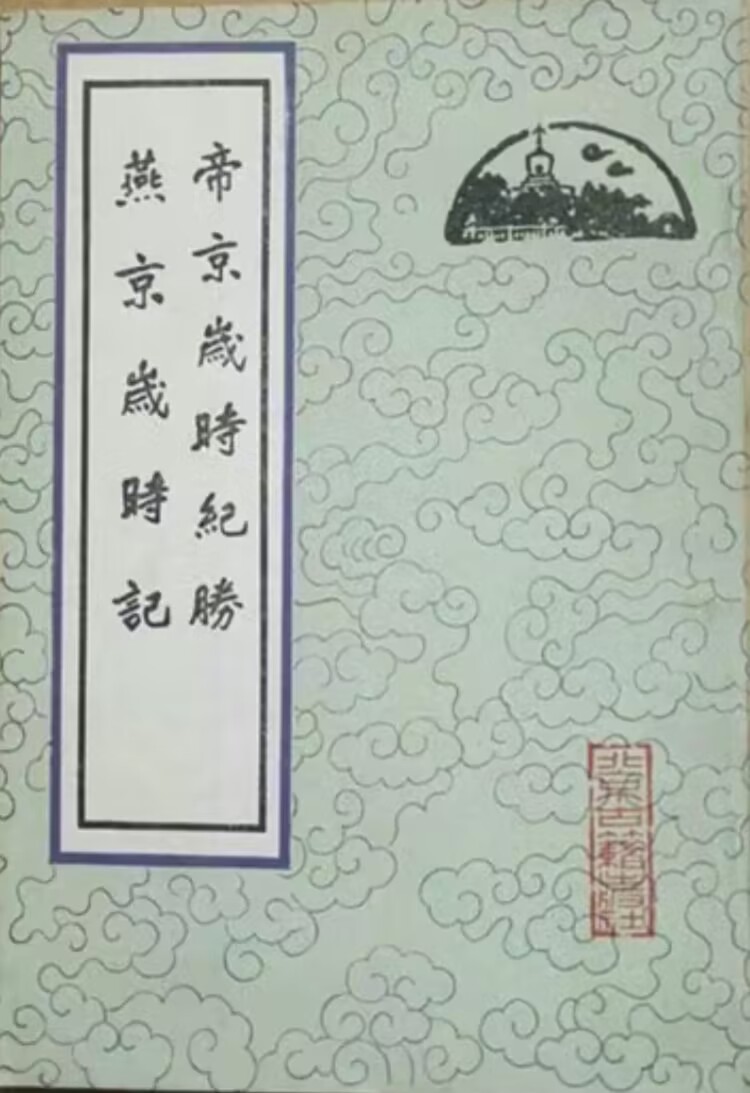 帝京歲時紀勝
燕京歲時記
北京古籍出版社